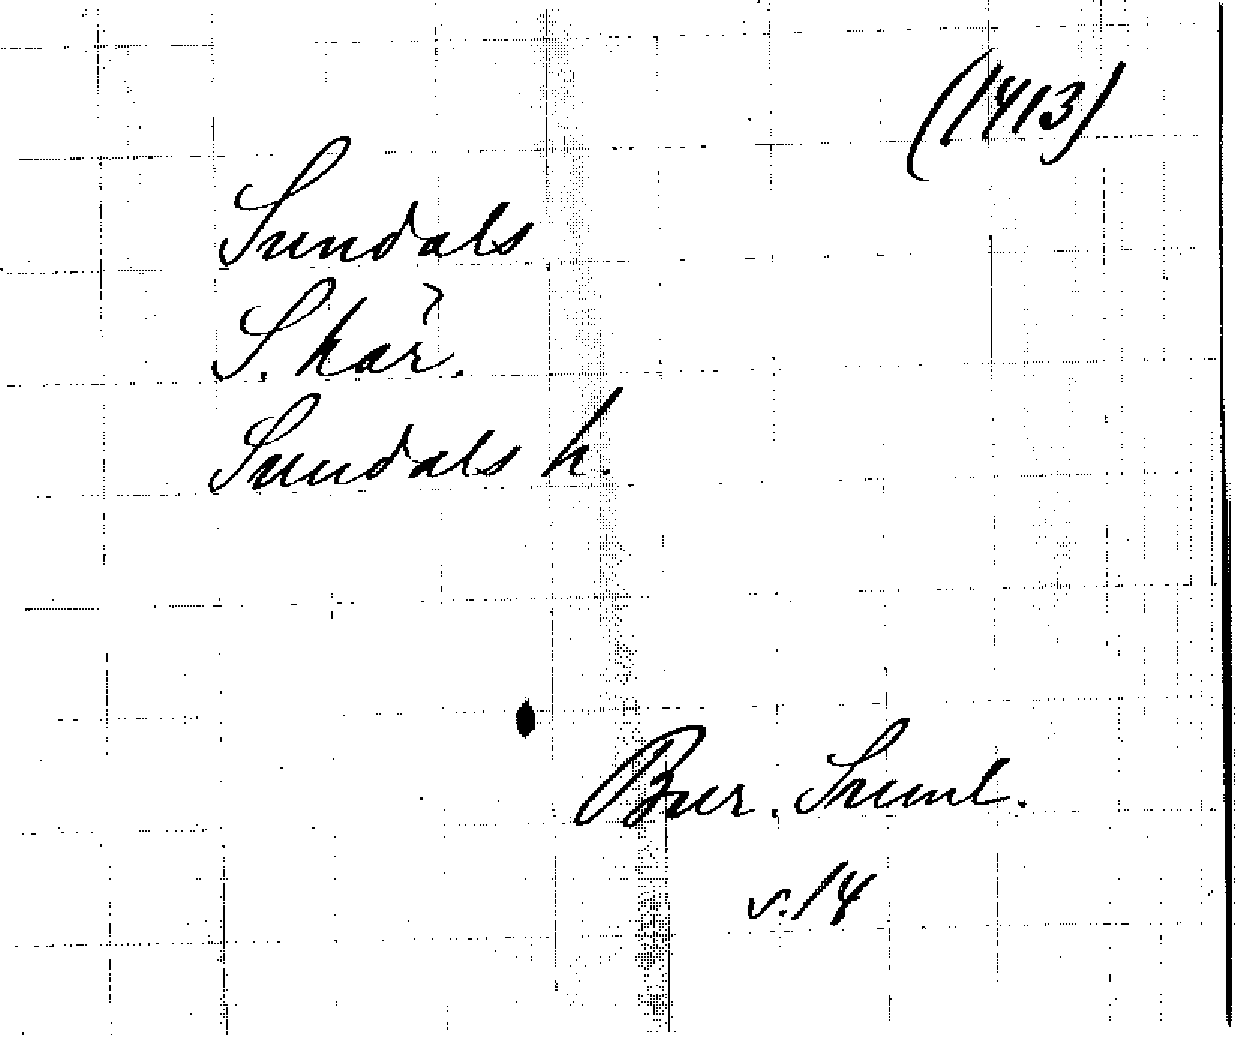 (1413)
Sundals
S. här.
Sundals h.
Bur. Suml.
s. 14